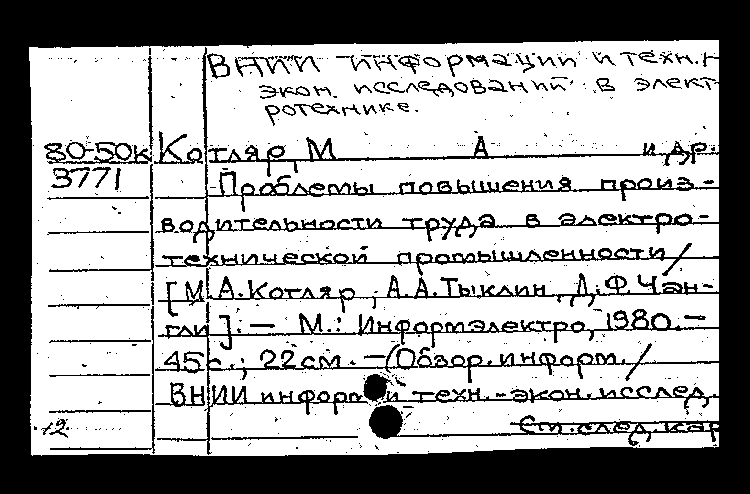 ВНИИ информации и техн.-
экон. исследований в элект-
ротехнике.
80-50к Котляр, М А и др.
3771 Проблемы повышения произ-
водительности труда в электро-
технической промышленности /
[М.А. Котляр, А.А. Тыклин, Д.Ф. Чан-
гли]. — М.: Информэлектро, 1980. —
45 с.; 22 см. — (Обзор. информ. /
ВНИИ информ и техн.-экон. исслед.
12. См. след. кар